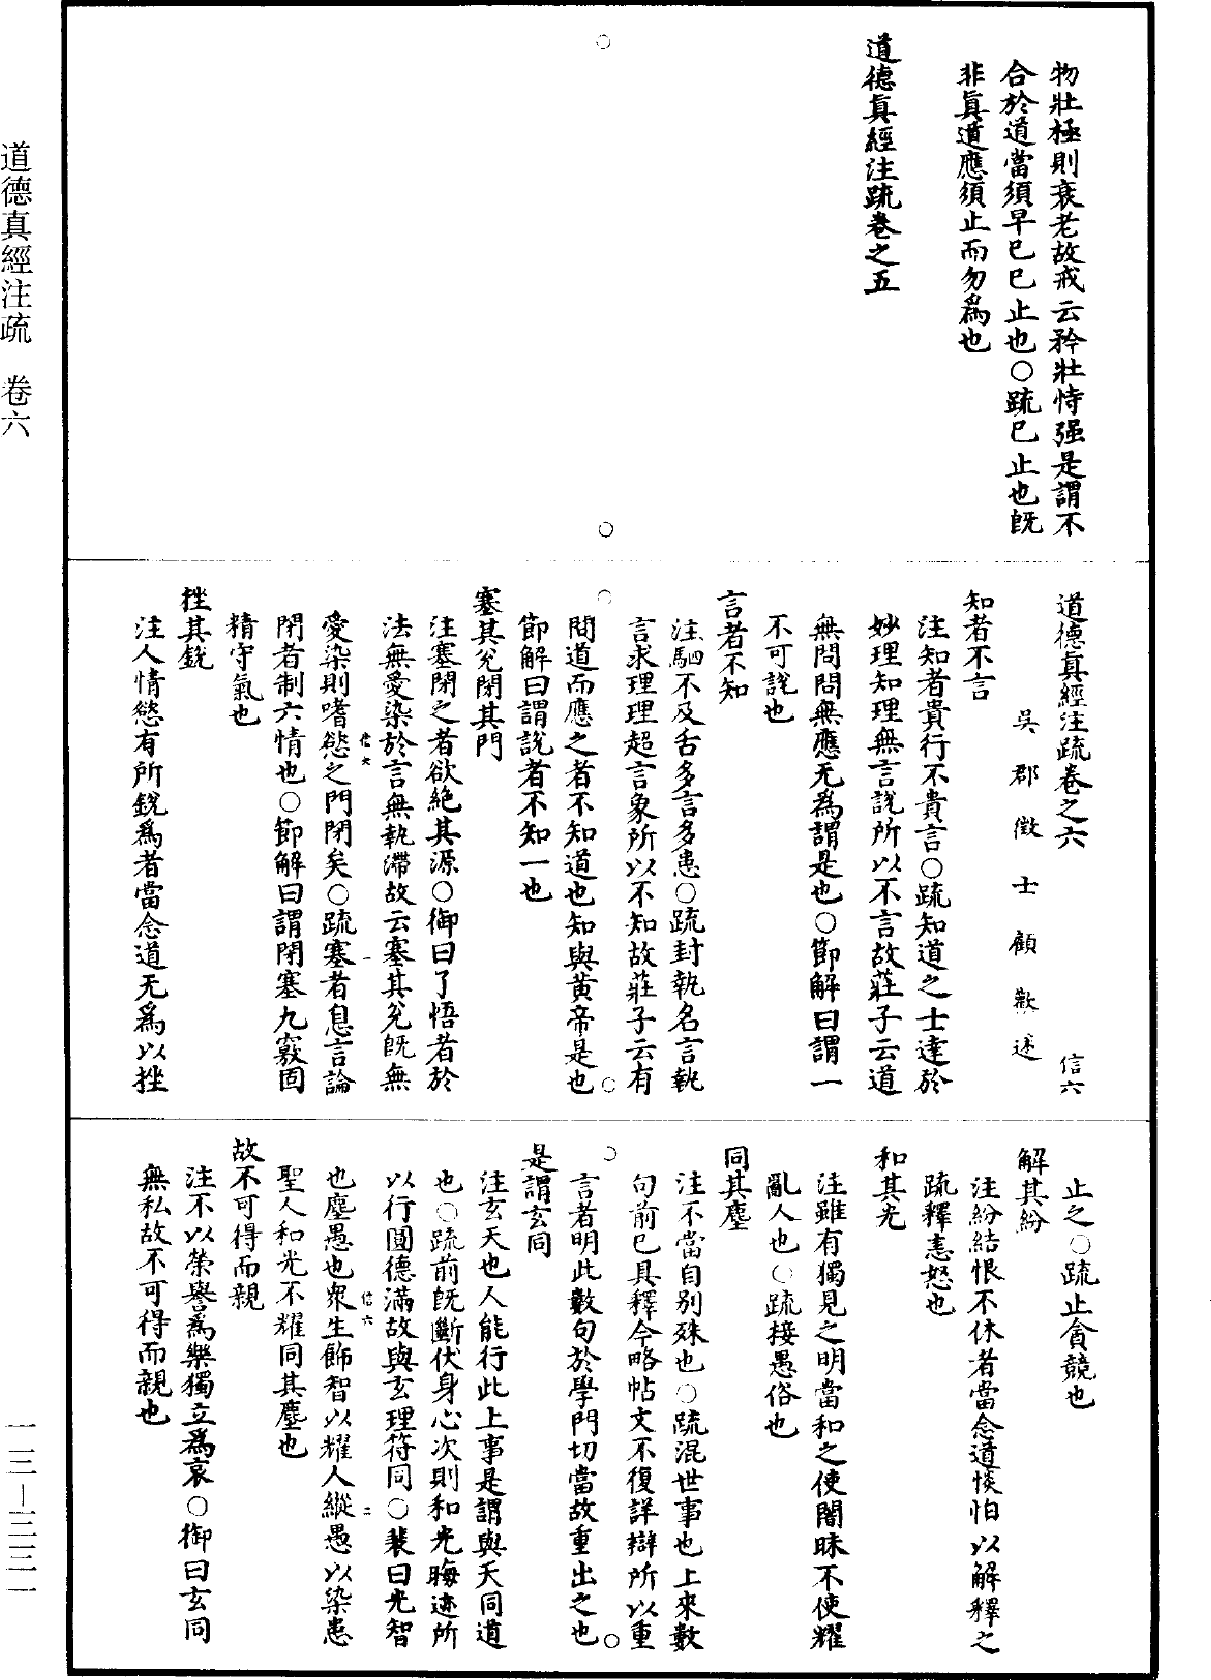 道德真經注疏　卷六
物壯極則衰老故戒云矜壯恃强是謂不
合於道當須早已已止也○䟽已止也旣
非眞道應須止而勿爲也
道德眞經注䟽卷之五
道德眞經注䟽卷之六　信六
吳郡徵士顧歡述
知者不言
注知者貴行不貴言○䟽知道之士達於
妙理知理無言說所以不言故莊子云道
無問問無應无爲謂是也○節解曰謂一
不可說也
言者不知
注駟不及舌多言多患○䟽封執名言執
言求理理超言象所以不知故莊子云有
問道而應之者不知道也知與黃帝是也
節解曰謂說者不知一也
塞其兌閉其門
注塞閉之者欲絶其源○御曰了悟者於
法無愛染於言無執滯故云塞其兌旣無
愛染則嗜慾之門閉矣○䟽塞者息言論
信六　一
閉者制六情也○節解曰謂閉塞九竅固
精守氣也
挫其銳
注人情慾有所銳爲者當念道无爲以挫
止之○䟽止貪競也
解其紛
注紛結恨不休者當念道惔怕以解釋之
䟽釋恚怒也
和其光
注雖有獨見之明當和之使闇昧不使耀
亂人也○䟽接愚俗也
同其塵
注不當自別殊也○䟽混世事也上來數
句前已具釋今略帖文不復詳辯所以重
言者明此數句於學門切當故重出之也
是謂玄同
注玄天也人能行此上事是謂與天同道
也○䟽前旣斷伏身心次則和光晦迹所
以行圓德滿故與玄理符同○裴曰光智
信六　二
也塵愚也衆生飾智以耀人縱愚以染患
聖人和光不耀同其塵也
故不可得而親
注不以榮譽爲樂獨立爲哀○御曰玄同
無私故不可得而親也
一三—三三一